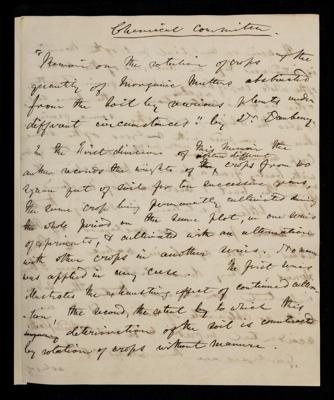 Chemical Committee.
"Memoir on the rotation of crops & the
quantity of Inorganic Matters abstracted
from the Soil by various plants under
different circumstances" by Dr. Daubeny.
In the first division of this Memoir the
author records the weights of the crops grown on
square of soils for ten successive years,
the same crop being permanently cultivated during
the whole period on the same plot, in one series
of experiments, & cultivated with an alternation
with other crops in another series. No manure
was applied in any case. The first series
illustrates the exhausting effect of continued cultiva-
-tion the second, the extent by to which this
deterioration of the soil is counteracted
by rotation of crops without manure.